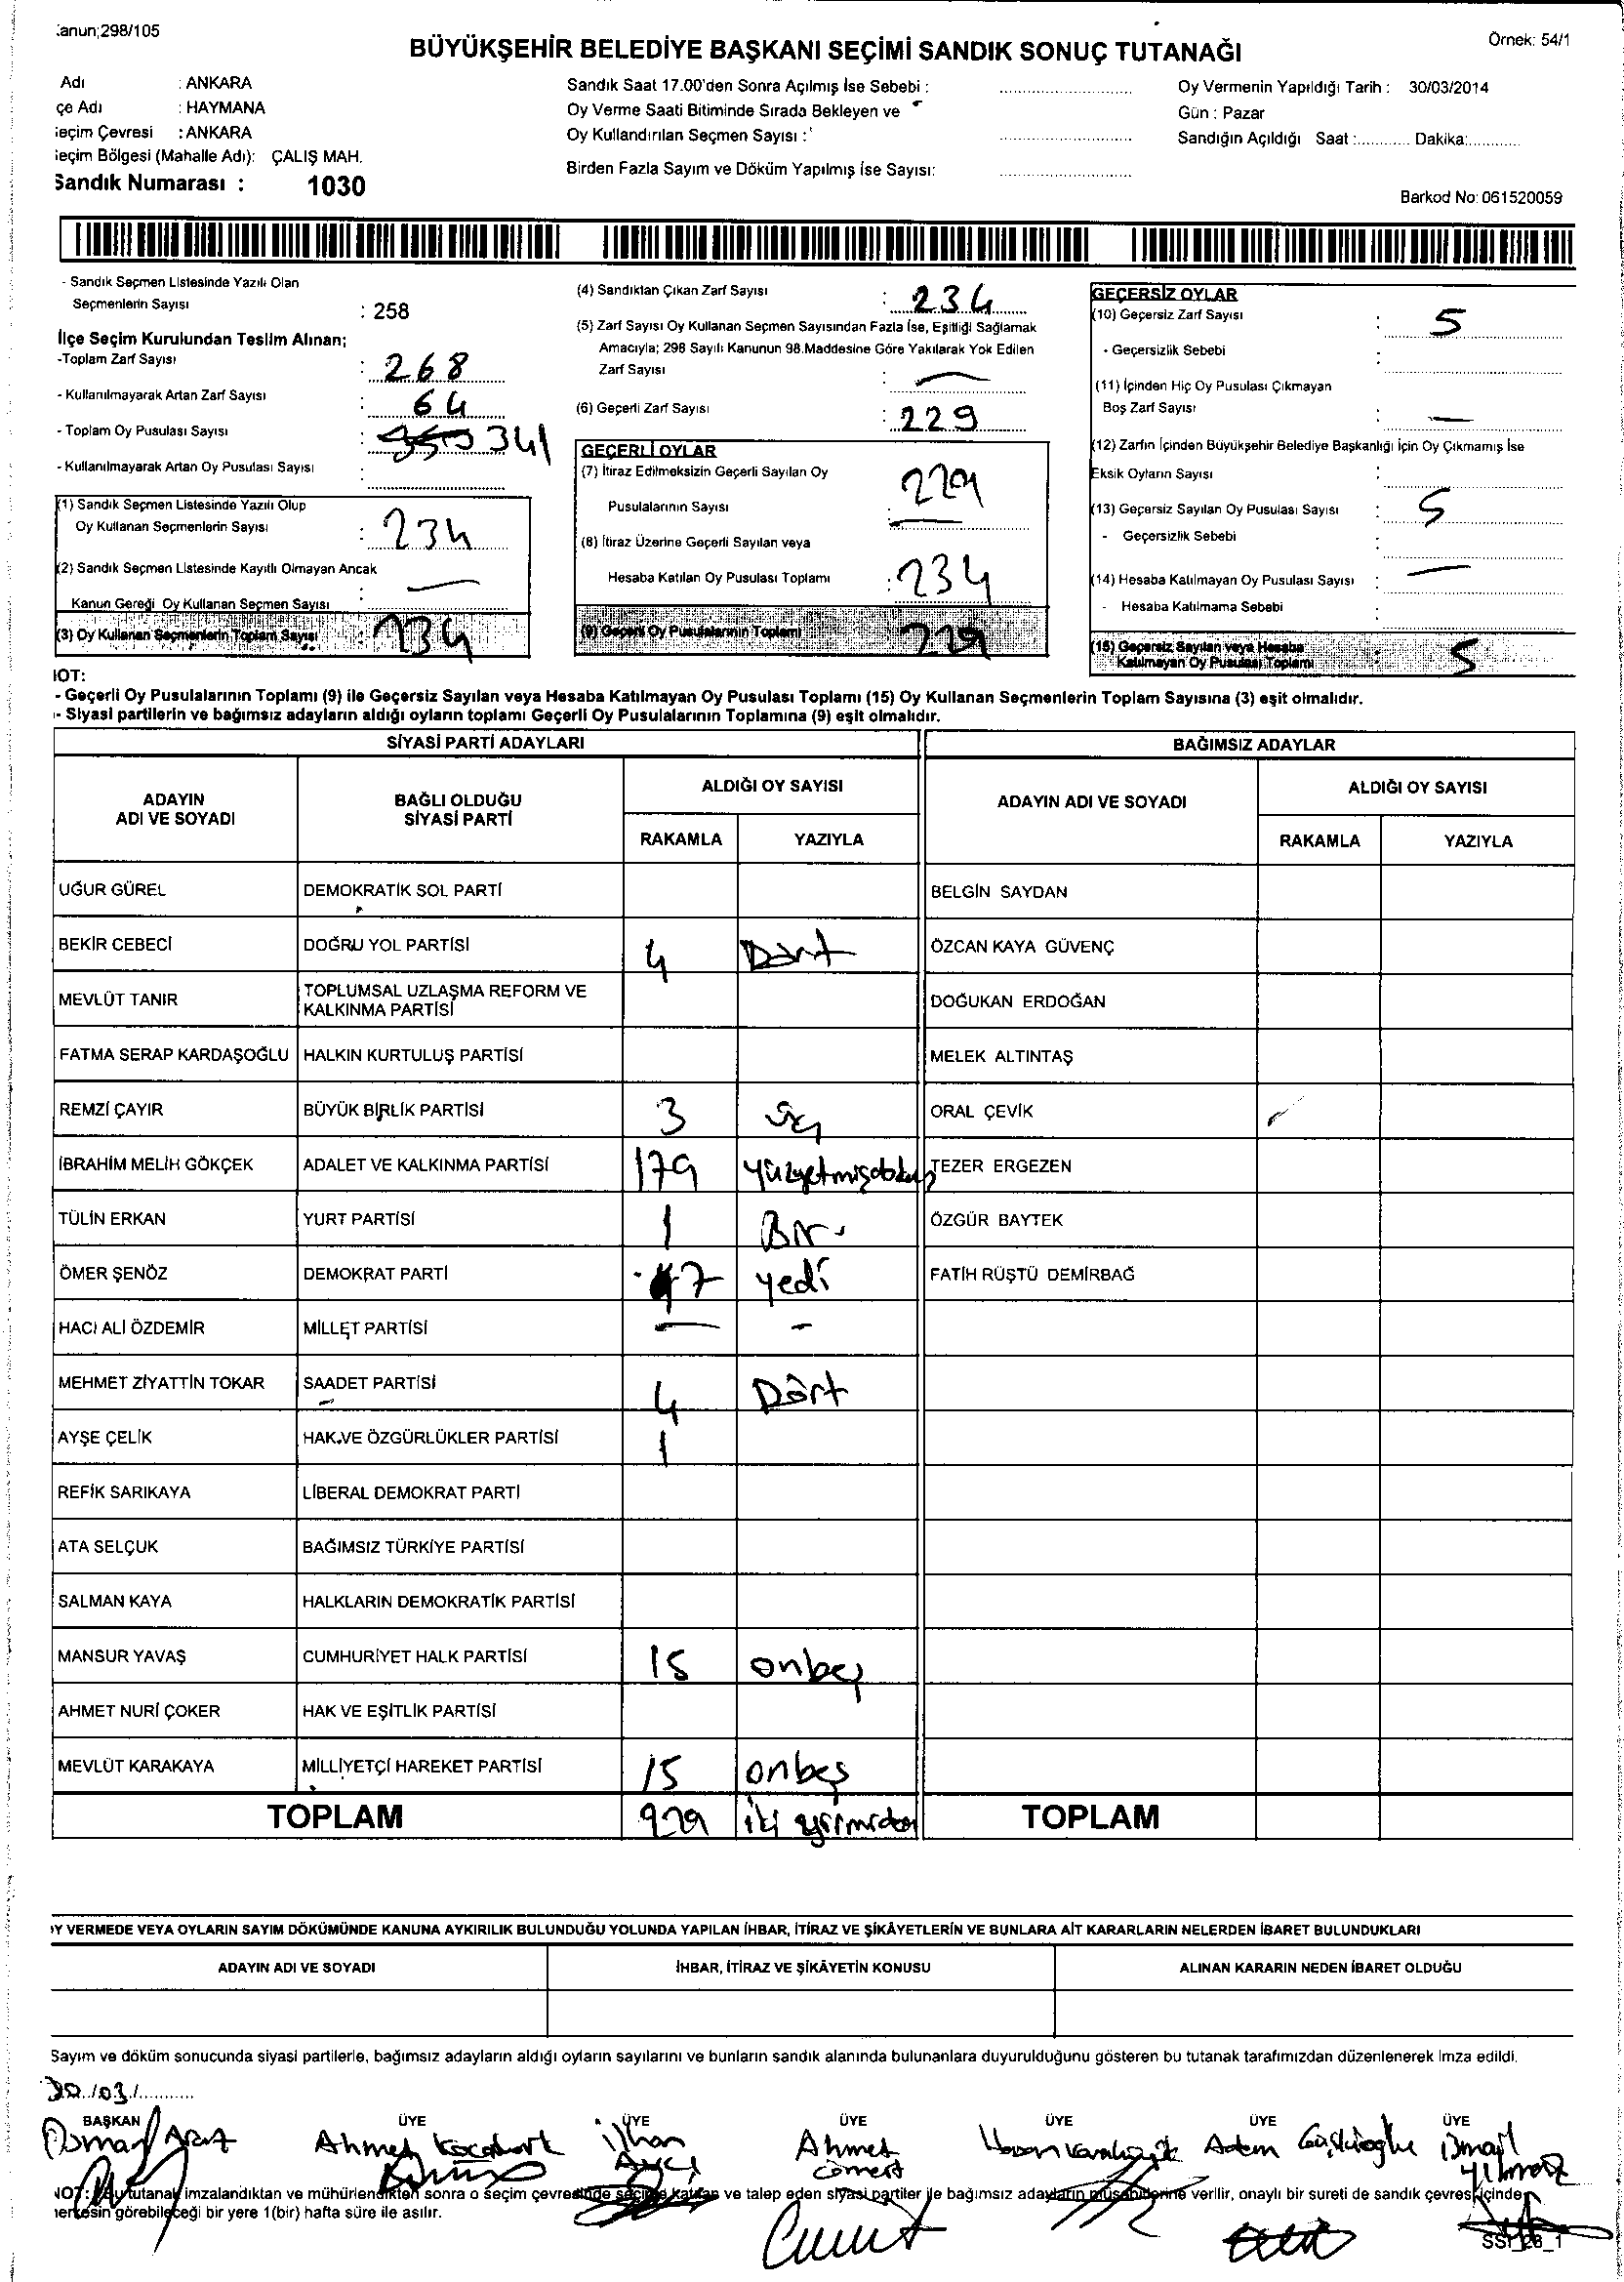 Kanun;298/105
Örnek: 54/1
BÜYÜKŞEHİR BELEDİYE BAŞKANI SEÇİMİ SANDIK SONUÇ TUTANAĞI
Adı : ANKARA
çe Adı : HAYMANA
eçim Çevresi : ANKARA
eçim Bölgesi (Mahalle Adı): ÇALIŞ MAH.
Sandık Numarası : 1030
Sandık Saat 17.00'den Sonra Açılmış İse Sebebi :
Oy Verme Saati Bitiminde Sırada Bekleyen ve
Oy Kullandırılan Seçmen Sayısı :
Birden Fazla Sayım ve Döküm Yapılmış İse Sayısı:
Oy Vermenin Yapıldığı Tarih : 30/03/2014
Gün : Pazar
Sandığın Açıldığı Saat :............ Dakika:............
Barkod No: 061520059
- Sandık Seçmen Listesinde Yazılı Olan
Seçmenlerin Sayısı : 258
İlçe Seçim Kurulundan Teslim Alınan;
-Toplam Zarf Sayısı : 268
- Kullanılmayarak Artan Zarf Sayısı : 64
- Toplam Oy Pusulası Sayısı : 341
- Kullanılmayarak Artan Oy Pusulası Sayısı :
(1) Sandık Seçmen Listesinde Yazılı Olup
Oy Kullanan Seçmenlerin Sayısı : 234
(2) Sandık Seçmen Listesinde Kayıtlı Olmayan Ancak
Kanun Gereği Oy Kullanan Seçmen Sayısı : —
(3) Oy Kullanan Seçmenlerin Toplam Sayısı : 234
(4) Sandıktan Çıkan Zarf Sayısı : 234
(5) Zarf Sayısı Oy Kullanan Seçmen Sayısından Fazla İse, Eşitliği Sağlamak
Amacıyla; 298 Sayılı Kanunun 98.Maddesine Göre Yakılarak Yok Edilen
Zarf Sayısı : —
(6) Geçerli Zarf Sayısı : 229
GEÇERLİ OYLAR
(7) İtiraz Edilmeksizin Geçerli Sayılan Oy
Pusulalarının Sayısı : 229
(8) İtiraz Üzerine Geçerli Sayılan veya
Hesaba Katılan Oy Pusulası Toplamı : 234
(9) Geçerli Oy Pusulalarının Toplamı 229
GEÇERSİZ OYLAR
(10) Geçersiz Zarf Sayısı : 5
- Geçersizlik Sebebi :
(11) İçinden Hiç Oy Pusulası Çıkmayan
Boş Zarf Sayısı : —
(12) Zarfın İçinden Büyükşehir Belediye Başkanlığı İçin Oy Çıkmamış İse
Eksik Oyların Sayısı :
(13) Geçersiz Sayılan Oy Pusulası Sayısı : 5
- Geçersizlik Sebebi :
(14) Hesaba Katılmayan Oy Pusulası Sayısı : —
- Hesaba Katılmama Sebebi :
(15) Geçersiz Sayılan veya Hesaba
Katılmayan Oy Pusulası Toplamı : 5
NOT:
- Geçerli Oy Pusulalarının Toplamı (9) ile Geçersiz Sayılan veya Hesaba Katılmayan Oy Pusulası Toplamı (15) Oy Kullanan Seçmenlerin Toplam Sayısına (3) eşit olmalıdır.
- Siyasi partilerin ve bağımsız adayların aldığı oyların toplamı Geçerli Oy Pusulalarının Toplamına (9) eşit olmalıdır.
SİYASİ PARTİ ADAYLARI BAĞIMSIZ ADAYLAR
ADAYIN ADI VE SOYADI BAĞLI OLDUĞU SİYASİ PARTİ ALDIĞI OY SAYISI ADAYIN ADI VE SOYADI ALDIĞI OY SAYISI
RAKAMLA YAZIYLA RAKAMLA YAZIYLA
UĞUR GÜREL DEMOKRATİK SOL PARTİ BELGİN SAYDAN
BEKİR CEBECİ DOĞRU YOL PARTİSİ 4 Dört ÖZCAN KAYA GÜVENÇ
MEVLÜT TANIR TOPLUMSAL UZLAŞMA REFORM VE KALKINMA PARTİSİ DOĞUKAN ERDOĞAN
FATMA SERAP KARDAŞOĞLU HALKIN KURTULUŞ PARTİSİ MELEK ALTINTAŞ
REMZİ ÇAYIR BÜYÜK BİRLİK PARTİSİ 3 Üç ORAL ÇEVİK
İBRAHİM MELİH GÖKÇEK ADALET VE KALKINMA PARTİSİ 179 yüzyetmişdokuz TEZER ERGEZEN
TÜLİN ERKAN YURT PARTİSİ 1 Bir ÖZGÜR BAYTEK
ÖMER ŞENÖZ DEMOKRAT PARTİ 7 yedi FATİH RÜŞTÜ DEMİRBAĞ
HACI ALİ ÖZDEMİR MİLLET PARTİSİ — -
MEHMET ZİYATTİN TOKAR SAADET PARTİSİ 4 Dört
AYŞE ÇELİK HAK VE ÖZGÜRLÜKLER PARTİSİ 1
REFİK SARIKAYA LİBERAL DEMOKRAT PARTİ
ATA SELÇUK BAĞIMSIZ TÜRKİYE PARTİSİ
SALMAN KAYA HALKLARIN DEMOKRATİK PARTİSİ
MANSUR YAVAŞ CUMHURİYET HALK PARTİSİ 15 onbeş
AHMET NURİ ÇOKER HAK VE EŞİTLİK PARTİSİ
MEVLÜT KARAKAYA MİLLİYETÇİ HAREKET PARTİSİ 15 onbeş
TOPLAM 229 iki TOPLAM
OY VERMEDE VEYA OYLARIN SAYIM DÖKÜMÜNDE KANUNA AYKIRILIK BULUNDUĞU YOLUNDA YAPILAN İHBAR, İTİRAZ VE ŞİKÂYETLERİN VE BUNLARA AİT KARARLARIN NELERDEN İBARET BULUNDUKLARI
ADAYIN ADI VE SOYADI İHBAR, İTİRAZ VE ŞİKÂYETİN KONUSU ALINAN KARARIN NEDEN İBARET OLDUĞU
Sayım ve döküm sonucunda siyasi partilerle, bağımsız adayların aldığı oyların sayılarını ve bunların sandık alanında bulunanlara duyurulduğunu gösteren bu tutanak tarafımızdan düzenlenerek imza edildi.
30/03/............
BAŞKAN ÜYE ÜYE ÜYE ÜYE ÜYE ÜYE
Osman Ahmet İlhan Ahmet Hasan Adem İsmail
Cömert Yılmaz
NOT: Bu tutanak imzalandıktan ve mühürlendikten sonra o seçim çevresinde seçime katılan ve talep eden siyasi partiler ile bağımsız adayların müşahitlerine verilir, onaylı bir sureti de sandık çevresi içinde
herkesin görebileceği bir yere 1(bir) hafta süre ile asılır.